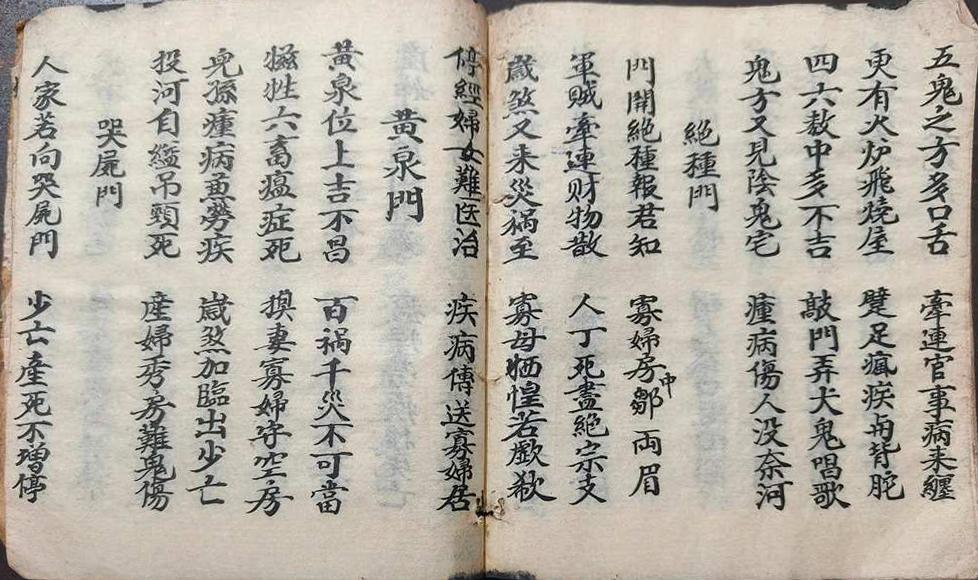 五鬼之方多口舌 牽連官事病来纏
更有火炉飛燒屋 躄足瘋疾两背肥
四六敖中多不吉 敲門弄犬鬼唱歌
鬼方又見陰鬼宅 瘇病傷人没奈河
絕種門
門開絕種報君知 寡婦房中鄒両眉
軍賊牽連财物散 人丁死盡絕宗支
歲煞又来災禍至 寡母恓惶若歎
停經婦女難医治 疾病傳送寡婦居
黃泉門
黃泉位上吉不昌 百禍千災不可當
犧牲六畜瘟症死 損妻寡婦守空房
児孫瘇病兼勞疾 歲煞加臨出少亡
投河自縊吊頸死 産婦秀房難鬼傷
哭屍門
人家若向哭屍門 少亡產死不增停